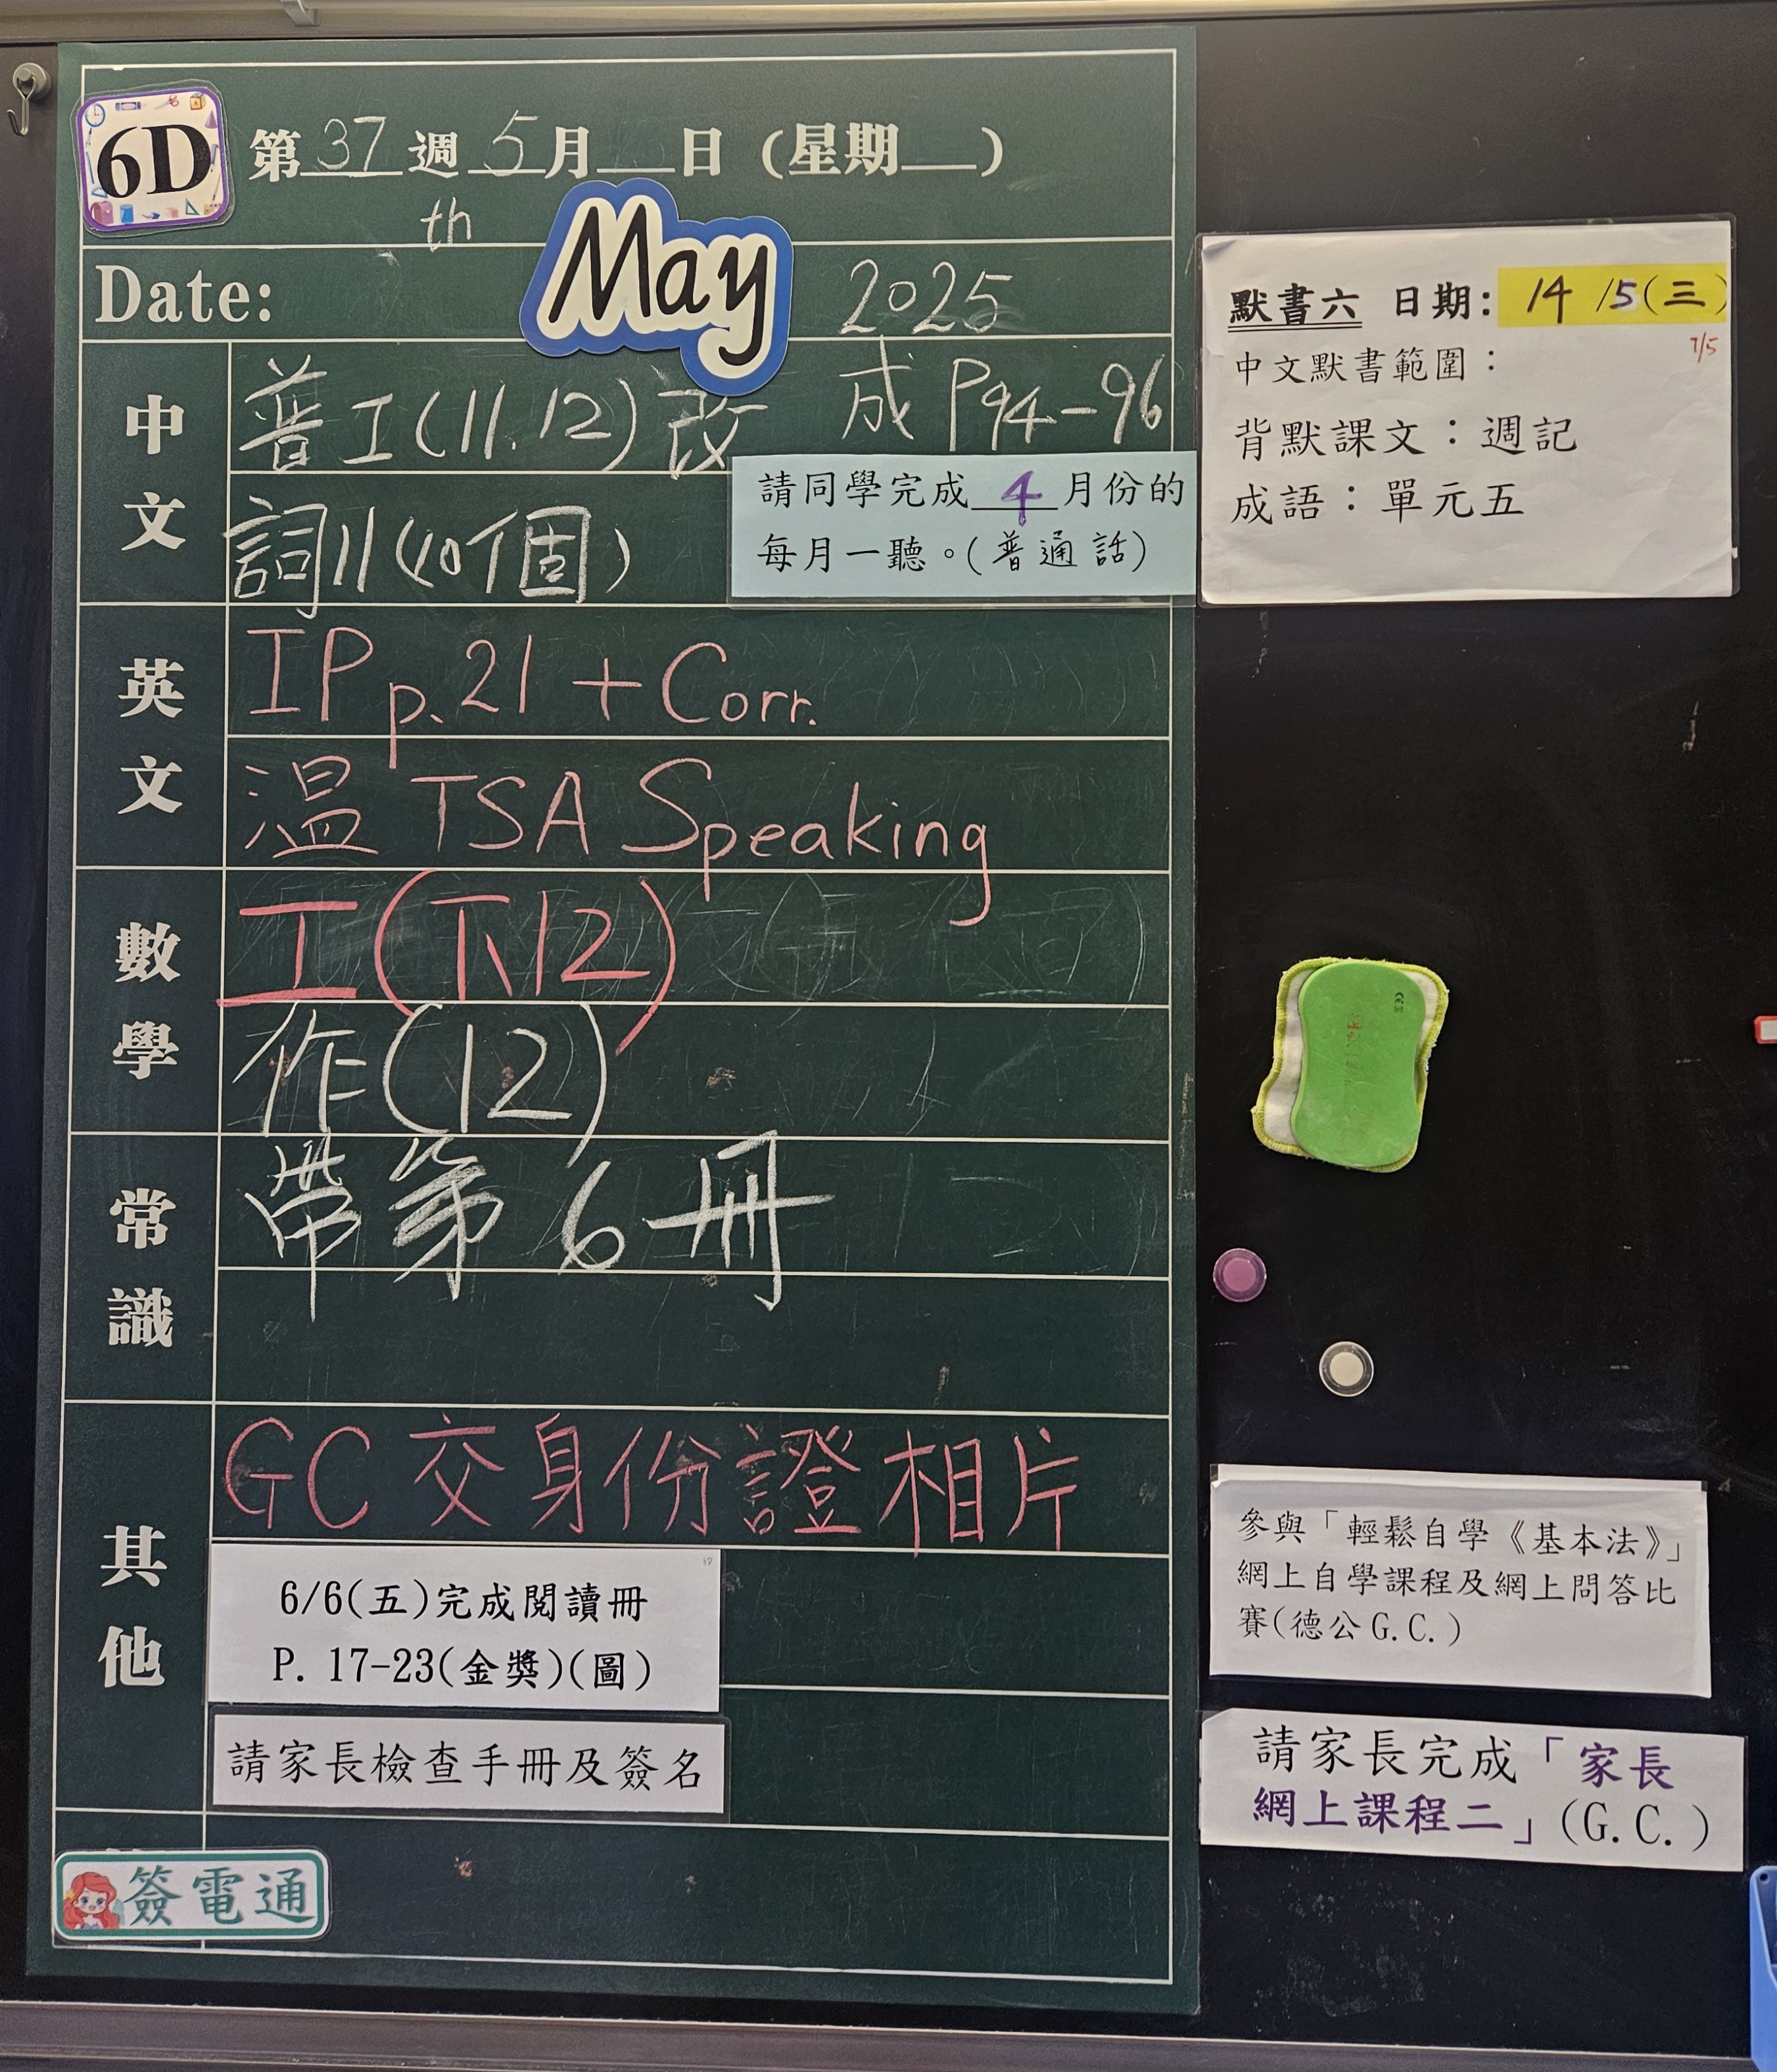 6D
第 37 週 5 月 日 (星期 )
th
Date: May 2025
中文
普工(11.12)改 成 P94-96
詞11(10個)
請同學完成 4 月份的
每月一聽。(普通話)
英文
IP p.21 + Corr.
溫 TSA Speaking
數學
工(下12)
作(12)
常識
帶第6冊
其他
GC 交身份證相片
6/6(五)完成閱讀冊
P. 17-23(金獎)(圖)
請家長檢查手冊及簽名
簽電通
默書六 日期: 14 /5(三)
7/5
中文默書範圍：
背默課文：週記
成語：單元五
參與「輕鬆自學《基本法》」
網上自學課程及網上問答比
賽(德公G.C.)
請家長完成「家長
網上課程二」(G.C.)